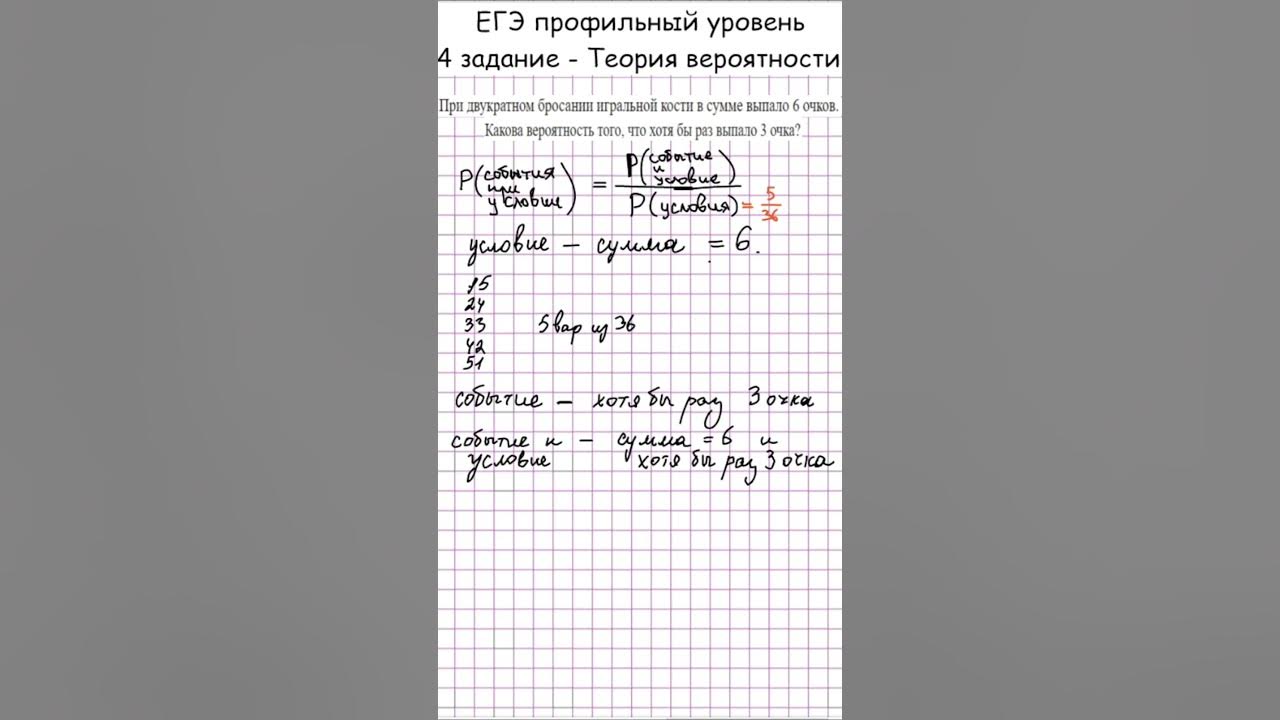 ЕГЭ профильный уровень
4 задание - Теория вероятности
При двукратном бросании игральной кости в сумме выпало 6 очков.
Какова вероятность того, что хотя бы раз выпало 3 очка?
P(события при условие) = P(событие и условие) / P(условия) = 5/36
условие — сумма = 6.
15
24
33 5 вар из 36
42
51
событие — хотя бы раз 3 очка
событие и — сумма = 6 и
условие хотя бы раз 3 очка